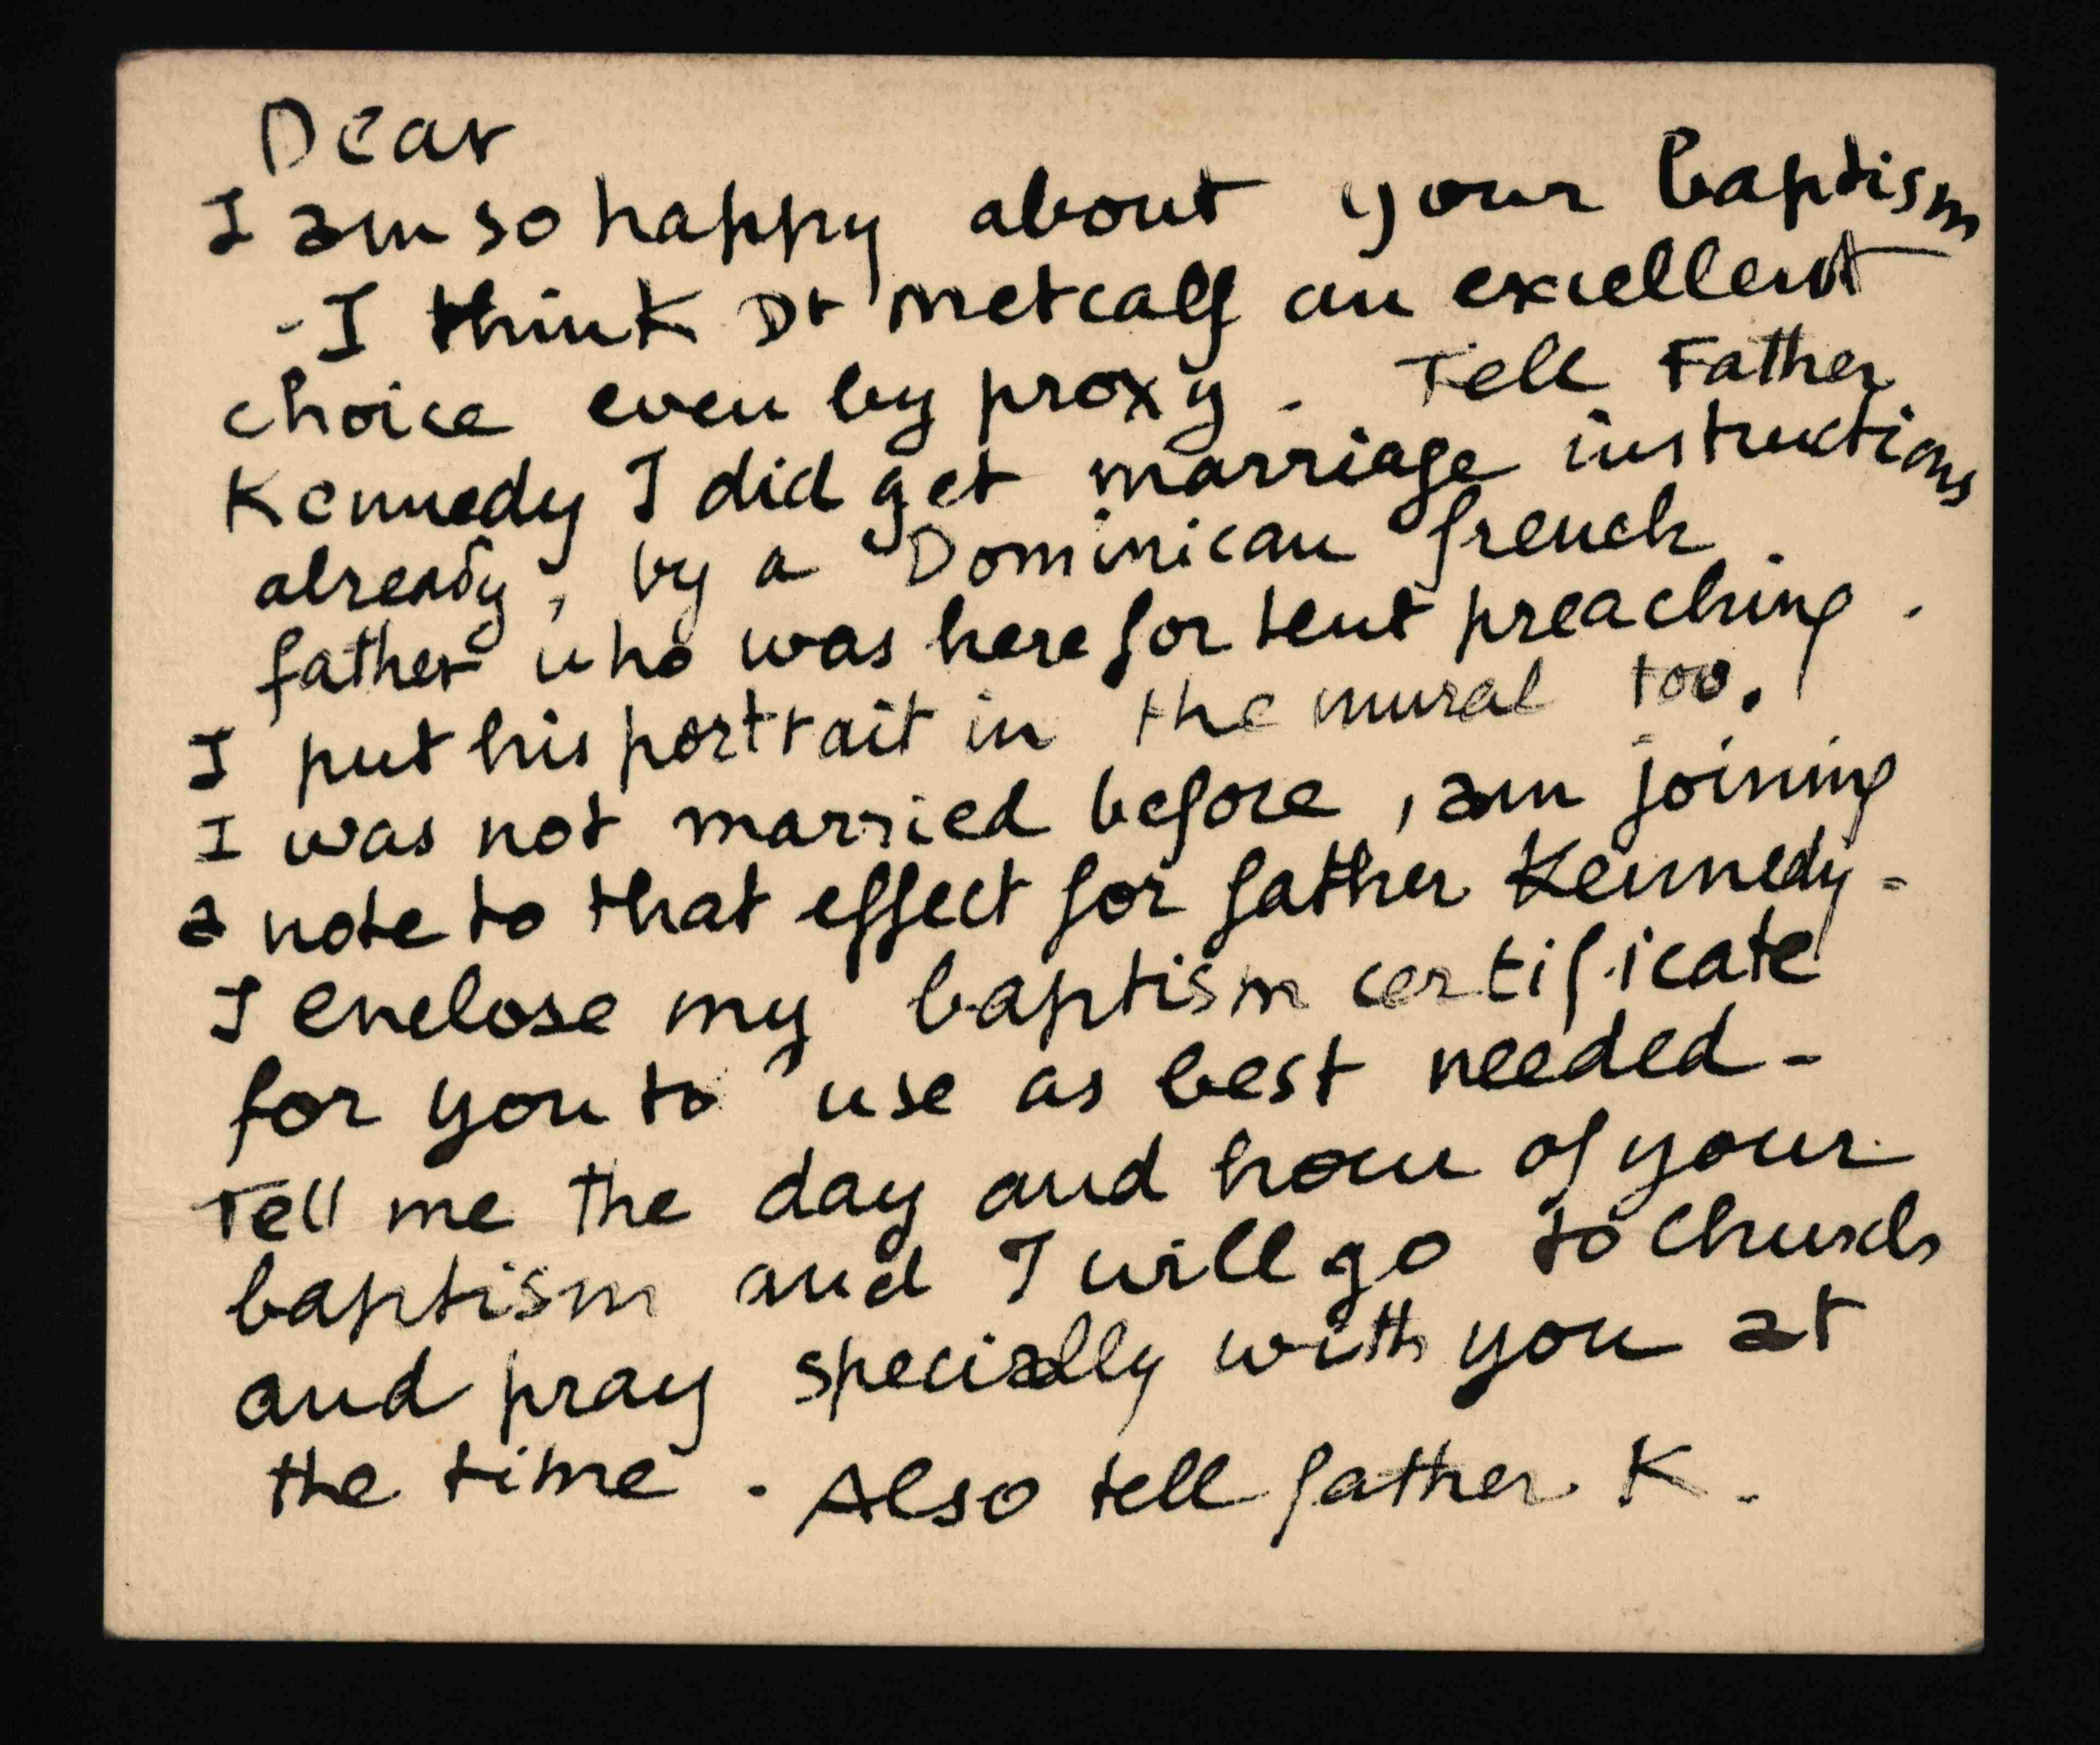 Dear
I am so happy about your baptism
- I think Dr Metcalf an excellent
choice even by proxy. Tell Father
Kennedy I did get marriage instructions
already, by a Dominican french
father who was here for lent preaching.
I put his portrait in the mural too.
I was not married before, am joining
a note to that effect for father Kennedy-
I enclose my baptism certificate
for you to use as best needed-
Tell me the day and hour of your
baptism and I will go to church
and pray specially with you at
the time. Also tell father K.